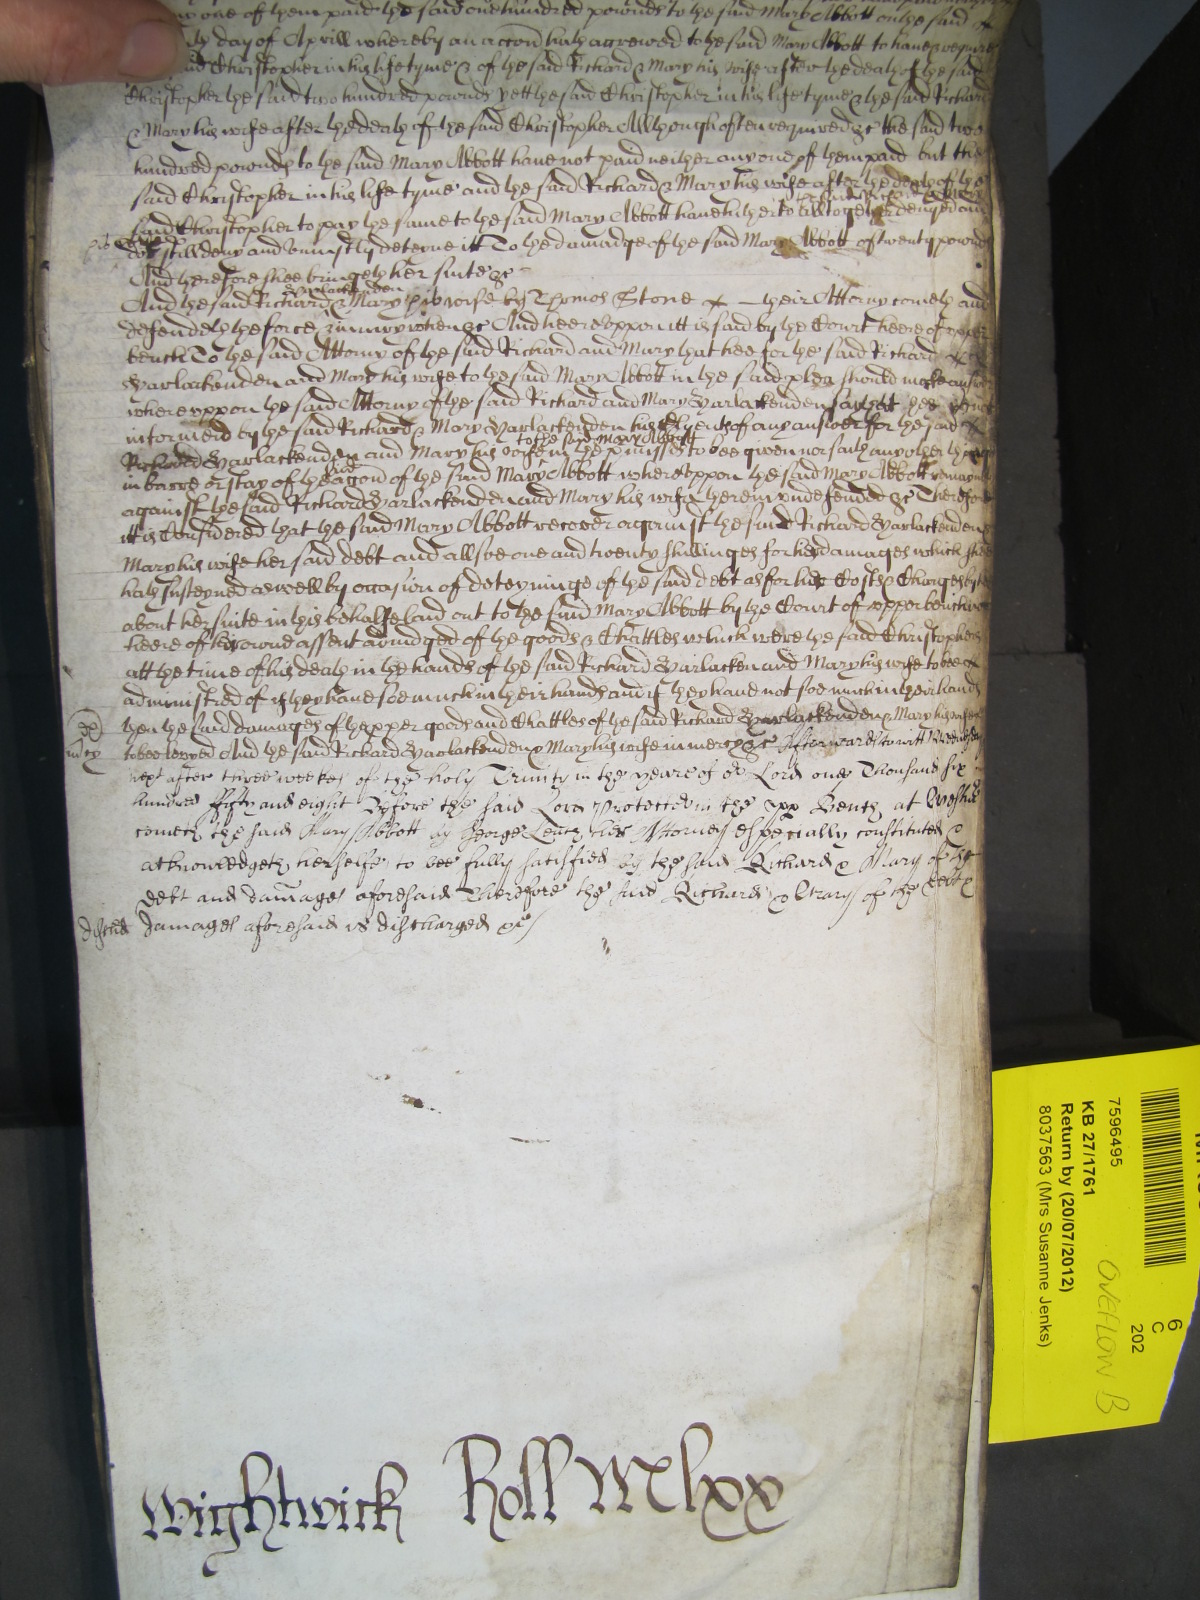 one of them paid the said one hundred pownds to the said Mary Abbott on the said
day of Aprill whereby an accon hath accrewed to the said Mary Abbott to have & require
Christopher in his life tyme & of the said Richard & Mary his wife after the death of the said
Christopher the said two hundred pownds yett the said Christopher in his life tyme & the said Richard
& Mary his wife after the death of the said Christopher Although often required &c the said two
hundred pownds to the said Mary Abbott have not paid neither any one of them paid but the
said Christopher in his life tyme and the said Richard & Mary his wife after the death of the
said Christopher to pay the same to the said Mary Abbott have hitherto altogether denyed and
still deny and uniustly deteyne itt To the damadge of the said Mary Abbott of twenty pownds
And therefore shee bringeth her suite &c
And the said Richard Harlackenden & Mary his wife by Thomas Stone their Attorny cometh and
defendeth the force & iniury when &c And heereuppon itt is said by the Court heere of upper
bench To the said Attorny of the said Richard and Mary that hee for the said Richard
Harlackenden and Mary his wife to the said Mary Abbott in the said plea should make answere
whereuppon the said Attorny of the said Richard and Mary Harlackenden sayeth hee is not
informed by the said Richard & Mary Harlackenden his Clyents of any answer for the said
Richard Harlackenden and Mary his wife to the said Mary Abbott in the premisses to bee given nor saith any other thinge
in barre or stay of the accon of the said Mary Abbott whereuppon the said Mary Abbott remayneth
against the said Richard Harlackenden and Mary his wife therein undefended &c Therefore
itt is Considered that the said Mary Abbott recover against the said Richard Harlackenden &
Mary his wife her said debt and allsoe one and twenty shillinges for her damages which shee
hath susteyned aswell by occasion of deteyninge of the said debt as for her Costs & Charges by her
about her suite in this behalfe laid out to the said Mary Abbott by the Court of upper bench
heere of her owne assent adiudged of the goods & Chattles which were the said Christophers
att the time of his death in the hands of the said Richard Harlacken and Mary his wife to bee
administred of if they have soe much in their hands and if they have not soe much in their hands
then the said damages of the pper goods and Chattles of the said Richard Harlackenden & Mary his wife
to bee levyed And the said Richard Harlackenden & Mary his wife in mercy &c Afterwards to witt
mcy
next after three weekes of the holy Trinity in the yeare of or Lord one Thousand six
hundred fifty and eight Before the said Lord Protector in the upp Bench at Westmr
cometh the said Mary Abbott by George Leach her Attorney especially constituted &
acknowledgeth herselfe to bee fully satisfied by the said Richard & Mary of the
debt and damages aforesaid Therefore the said Richard & Mary of the debt &
damages aforesaid is discharged &c
Wightwick Roll Mlxx
7596495
KB 27/1761
Return by (20/07/2012)
8037563 (Mrs Susanne Jenks)
OVEFLOW B
6
C
202